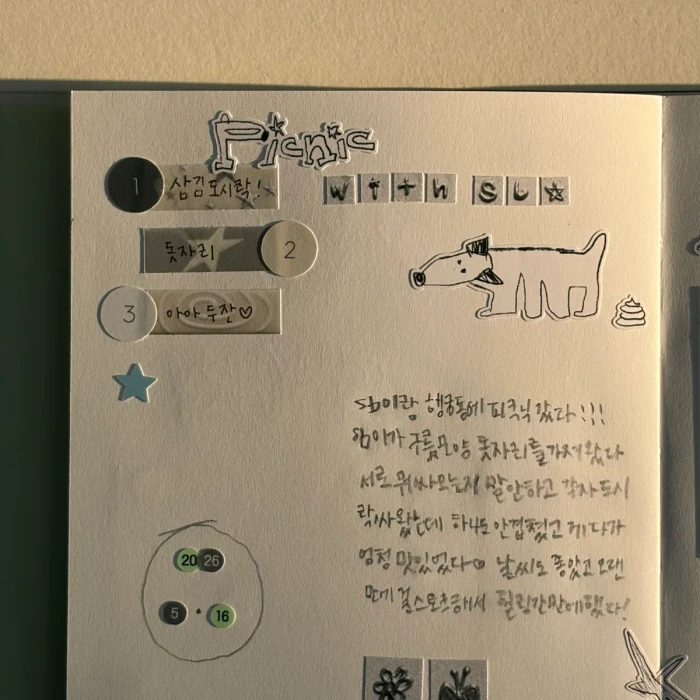 Picnic
with SL☆
1 삼김도시락!
돗자리 2
3 아아 두잔♡
sb이랑 행궁동에 피크닉 갔다!!!
sb이가 구름모양 돗자리를 가져왔다
서로 뭐싸오는지 말안하고 각자도시
락싸왔는데 하나도 안겹쳤고 게다가
엄청 맛있었다♡ 날씨도 좋았고 오랜
만에 걸스토크해서 힐링
20 26
5 · 16